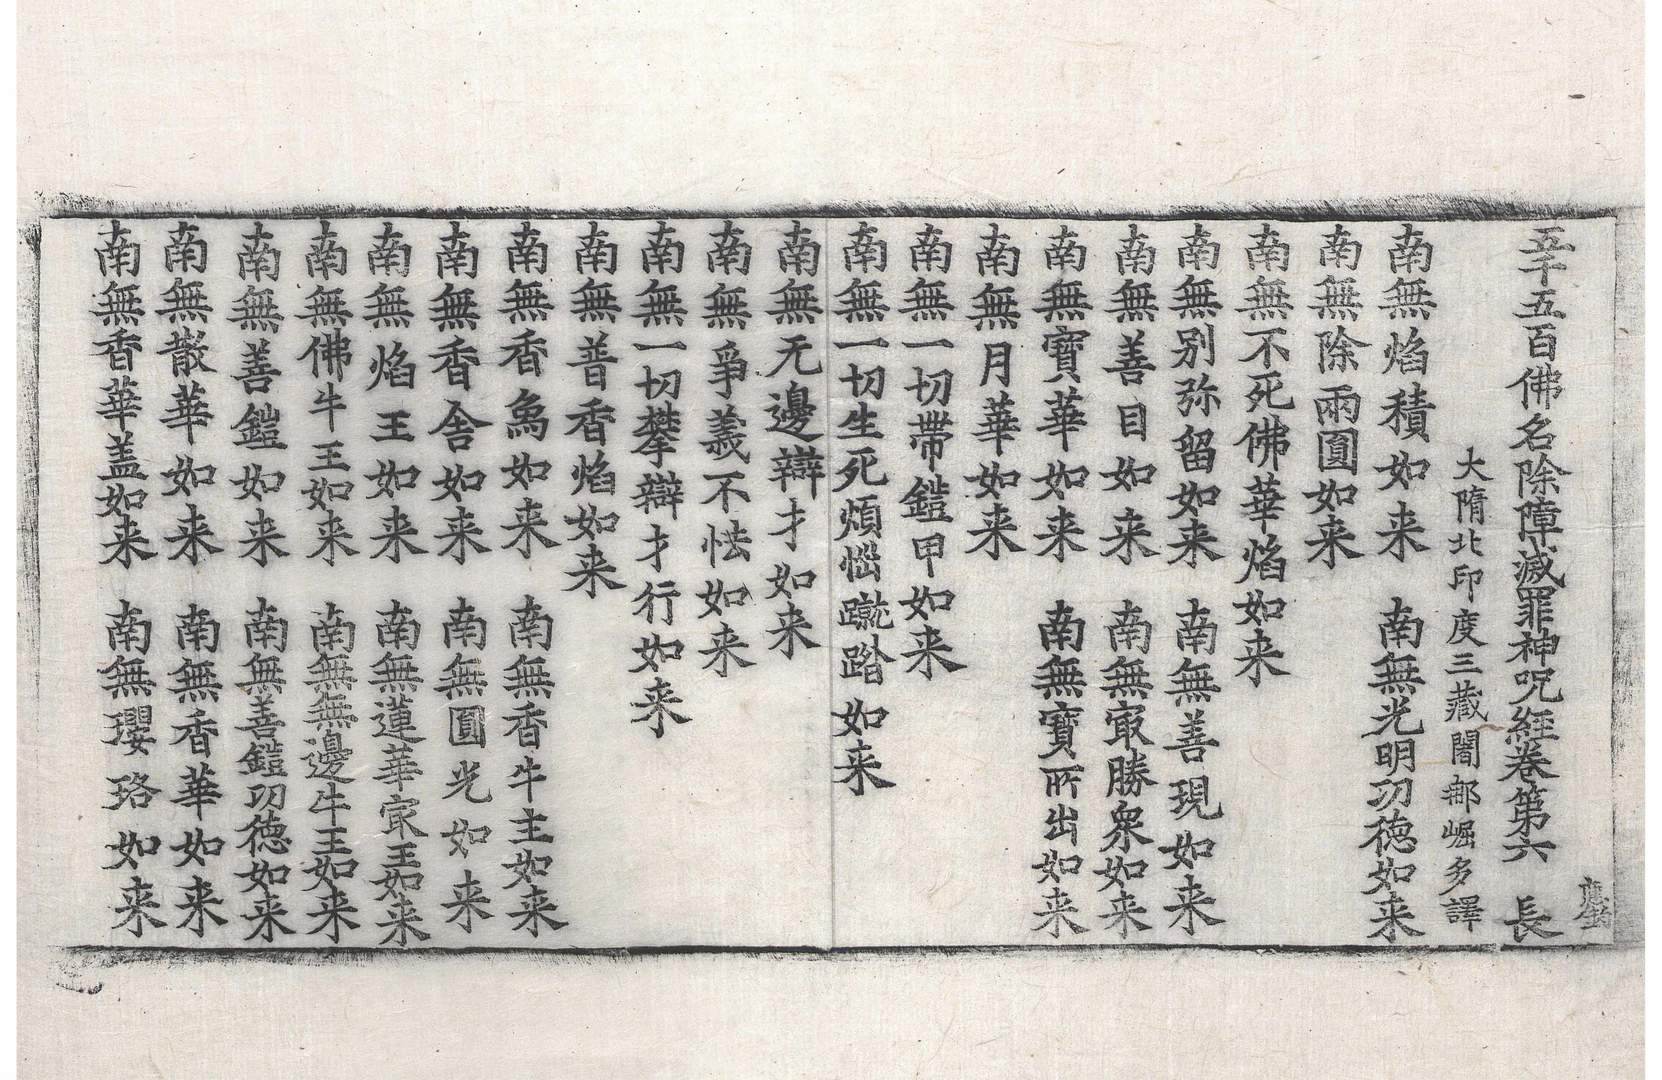 五千五百佛名除障滅罪神呪經卷第六　長
大隋北印度三藏闍那崛多譯
南無焰積如来　南無光明功德如来
南無除雨圓如来
南無不死佛華焰如来
南無別弥留如来　南無善現如来
南無善目如来　南無冣勝衆如来
南無寶華如来　南無寶所出如来
南無月華如来
南無一切帶鎧甲如来
南無一切生死煩惱躐踏如来
南無无邊辯才如来
南無爭義不怯如来
南無一切攀辯才行如来
南無普香焰如来
南無香魚如来　南無香牛主如来
南無香舍如来　南無圓光如来
南無焰王如来　南無蓮華冣王如来
南無佛牛王如来　南無無邊牛王如来
南無善鎧如来　南無善鎧功德如来
南無散華如来　南無香華如来
南無香華盖如来　南無瓔珞如来